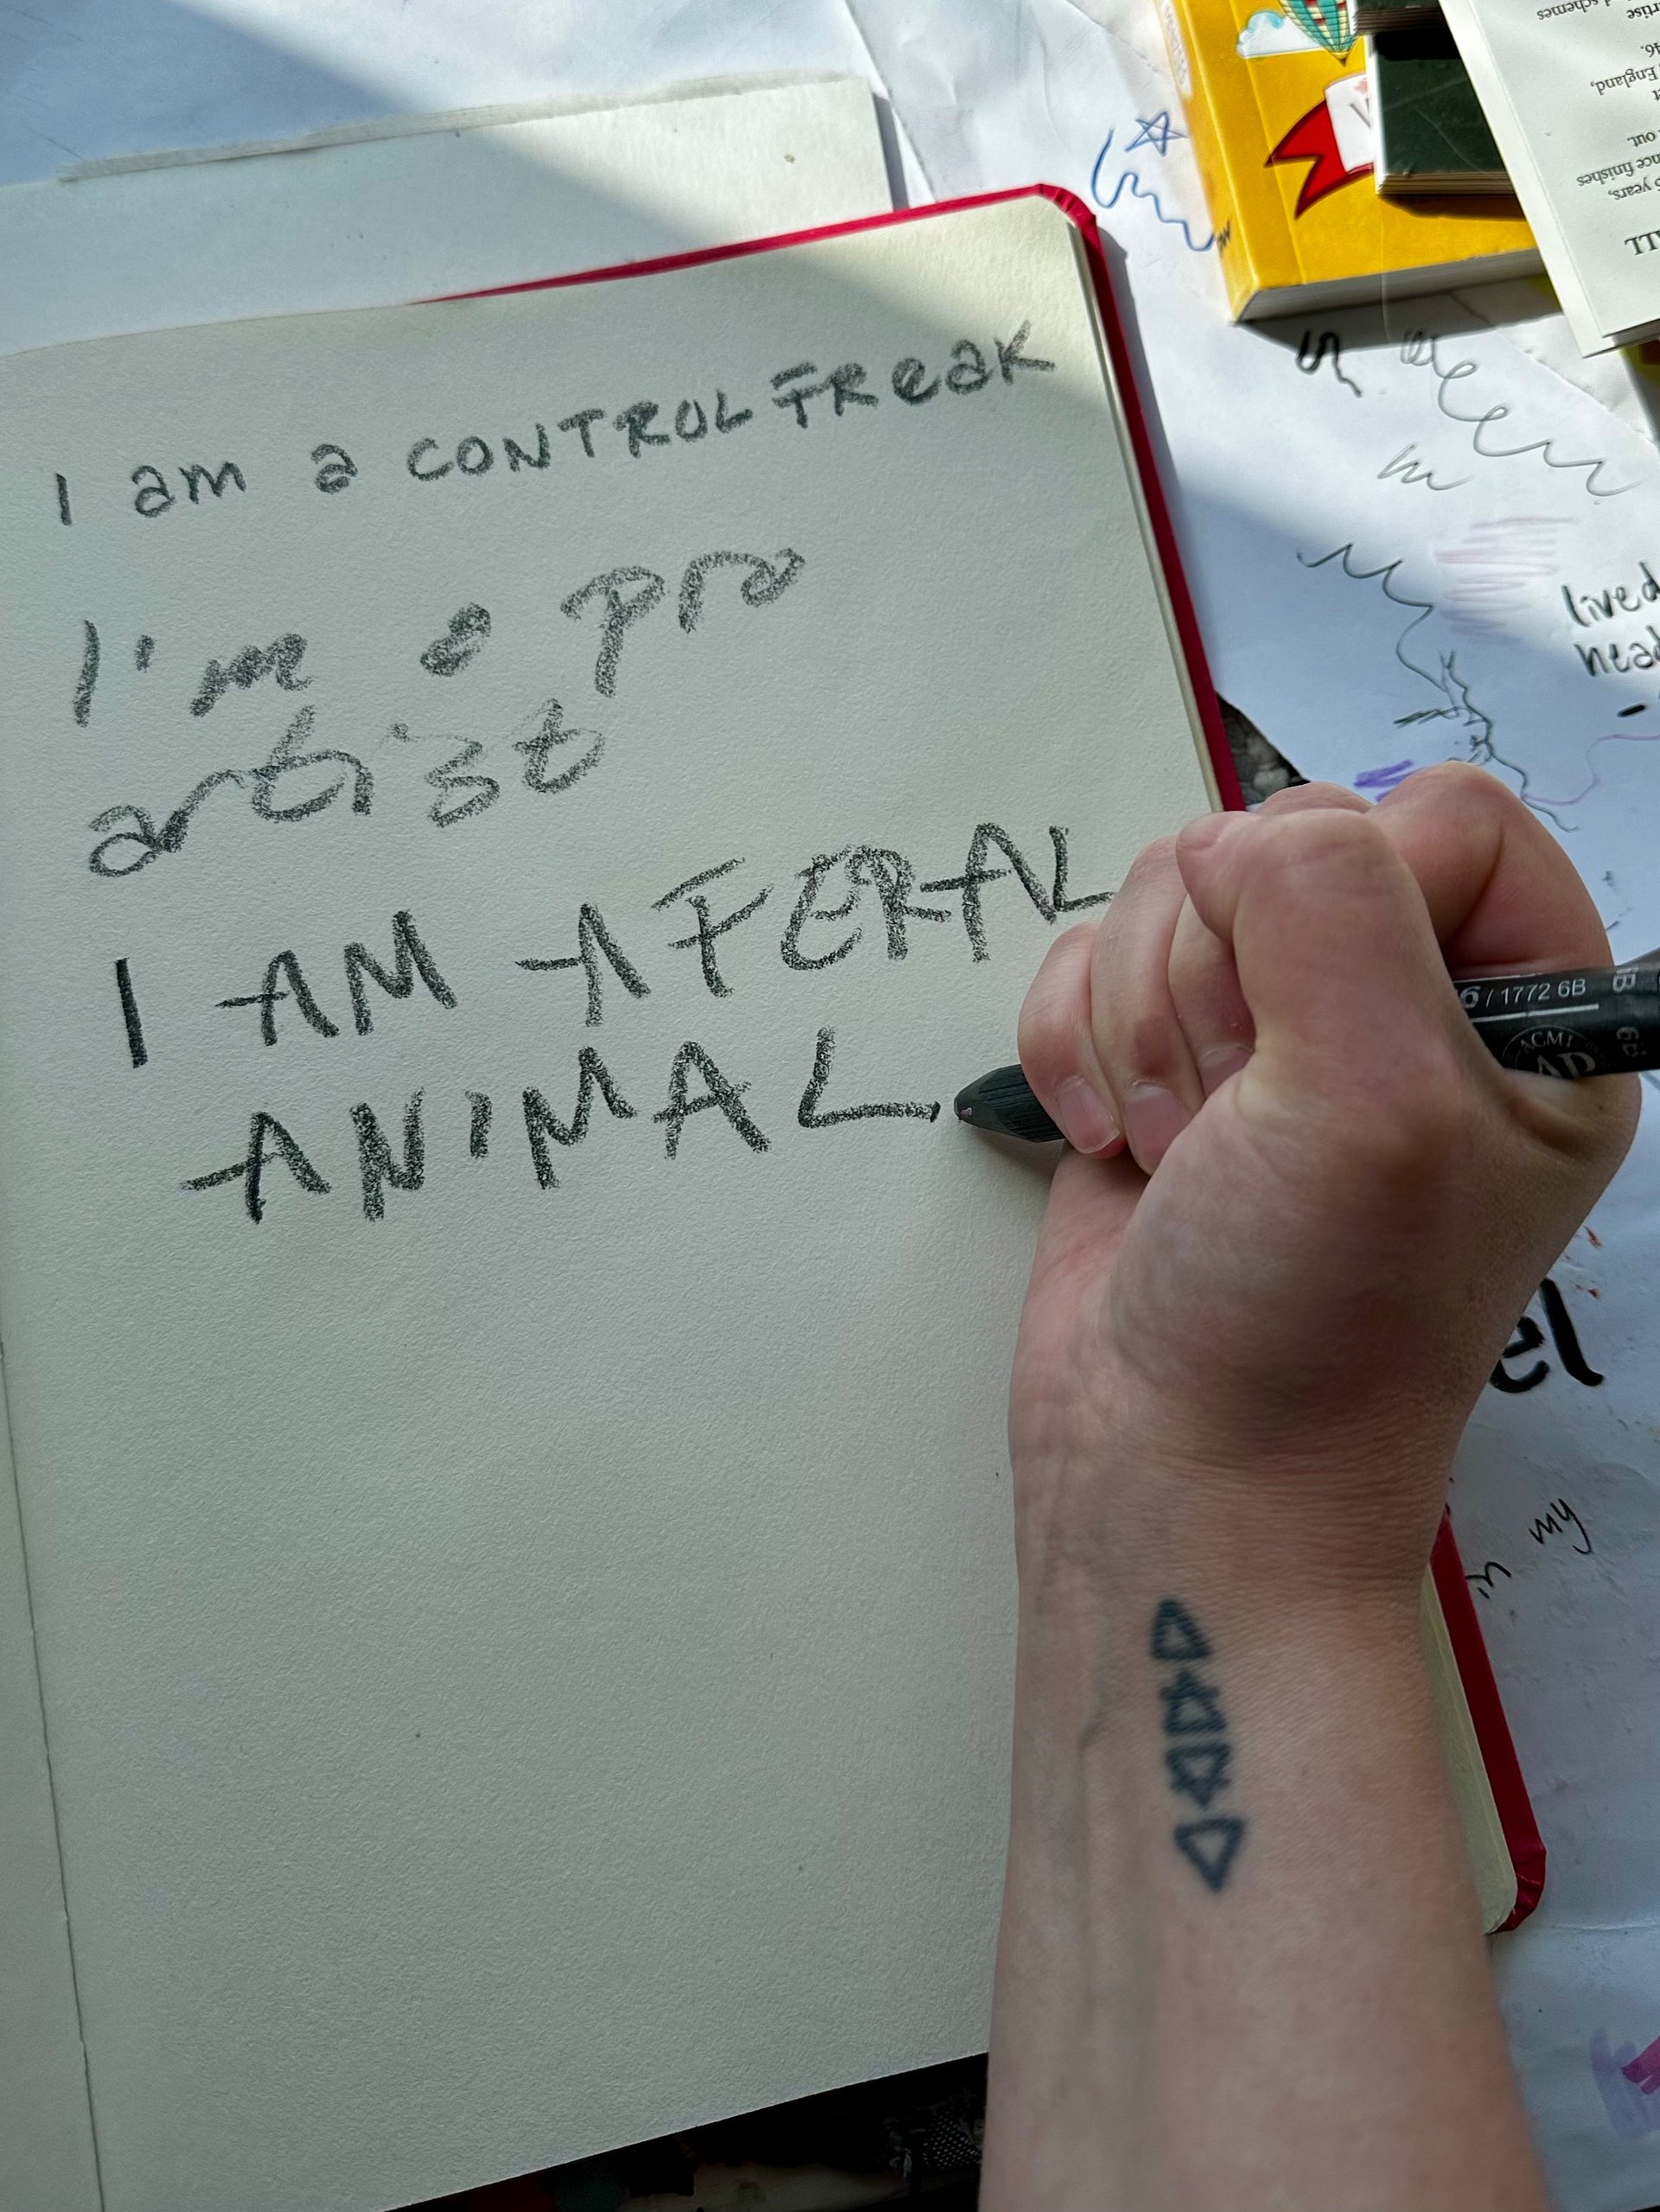 I am a CONTROL FReaK
I'm a pro
artist
I AM A FERAL
ANIMAL
/ 1772 6B
6B
ACMI
AP
lived
head
el
in my
schemes
England,
out.
nce finishes
years,